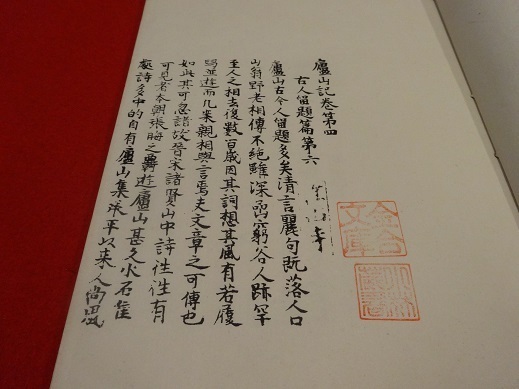 廬山記卷第四
古人留題篇第六
高山寺
廬山古今人留題多矣清言麗句既落人口
山翁野老相傳不絶雖深嵒窮谷人跡罕
至人之相去復數百歲因其詞想其風有若履
舄並遊而几案親相與言焉夫文章之可傳也
如此其可忽諸故晉宋諸賢山中詩往往有
可見者本朝張晦之遊廬山甚久水石崖
詩多中的自有廬山集平以來人尚
文庫